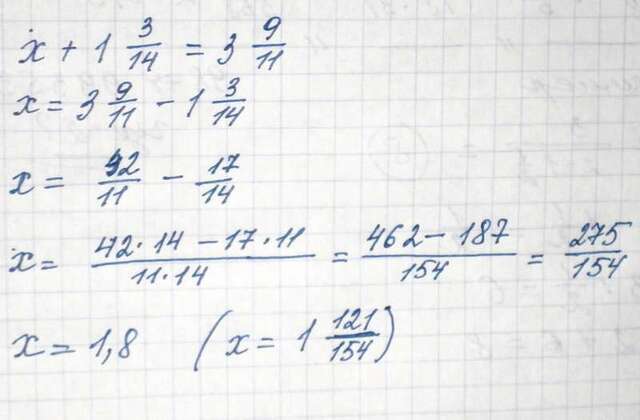 x + 1 3/14 = 3 9/11
x = 3 9/11 - 1 3/14
x = 42/11 - 17/14
x = (42·14 - 17·11)/(11·14) = (462 - 187)/154 = 275/154
x = 1,8 (x = 1 121/154)